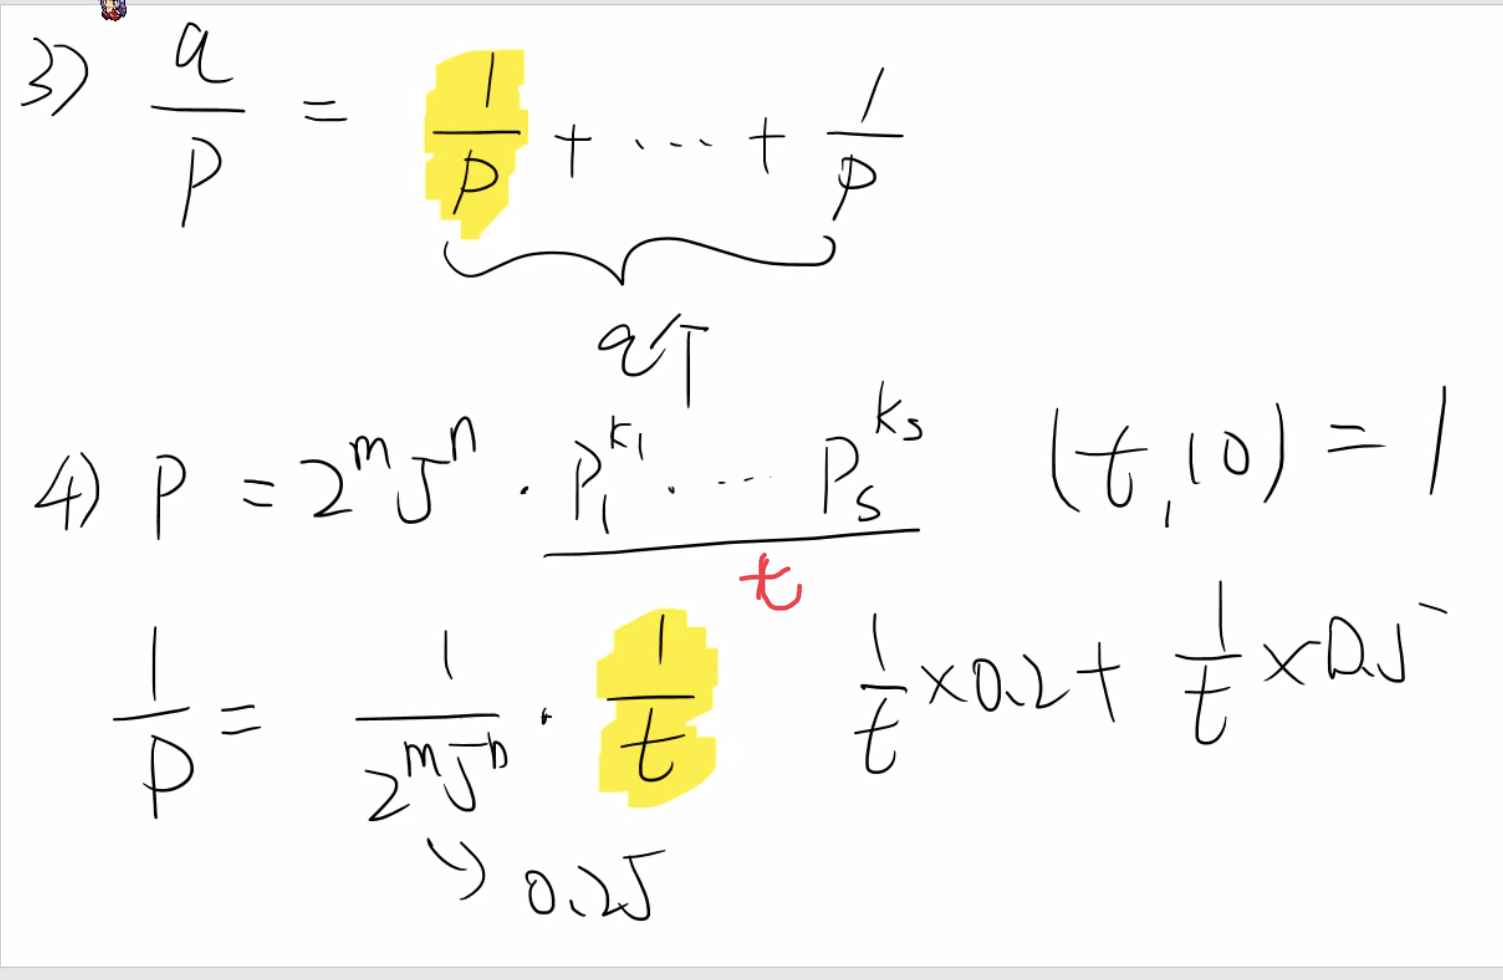 3) a/p = 1/p + ... + 1/p
a个
4) p = 2^m 5^n · p_1^{k_1} · ... p_s^{k_s} (t, 10) = 1
t
1/p = 1/(2^m 5^n) · 1/t 1/t × 0.2 + 1/t × 0.5
→ 0.25